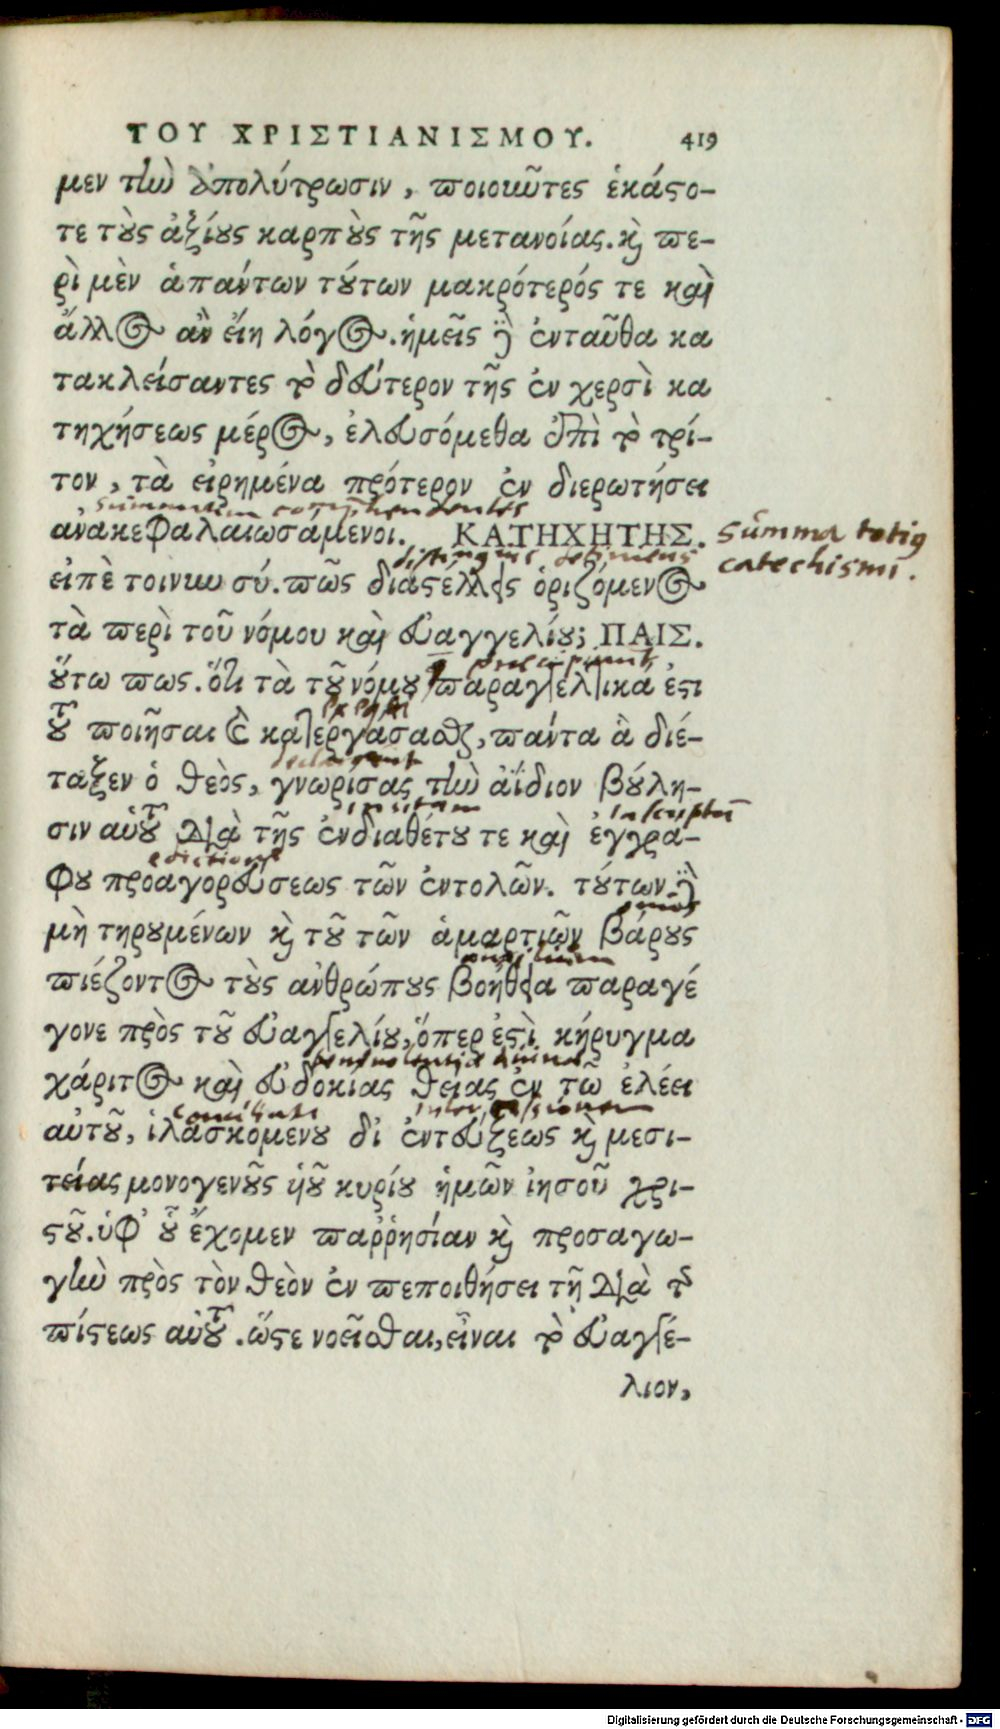 ΤΟΥ ΧΡΙΣΤΙΑΝΙΣΜΟΥ. 419
μεν τὴν ἀπολύτρωσιν, ποιοιοῦντες ἑκάστο-
τε τοὺς ἀξίους καρποὺς τῆς μετανοίας. καὶ πε-
ρὶ μὲν ἁπάντων τούτων μακρότερός τε καὶ
ἄλλος ἂν εἴη λόγος. ἡμεῖς δὲ ἐνταῦθα κα
τακλείσαντες τὸ δεύτερον τῆς ἐν χερσὶ κα
τηχήσεως μέρος, ἐλευσόμεθα ἐπὶ τὸ τρί-
τον, τὰ εἰρημένα πρότερον ἐν διερωτήσει
summatim comprehendentes
ἀνακεφαλαιωσάμενοι. ΚΑΤΗΧΗΤΗΣ. summa totius
distinguis definiens catechismi.
εἰπὲ τοίνυν σύ. πῶς διαστέλλεις ὁριζόμενος
τὰ περὶ τοῦ νόμου καὶ εὐαγγελίου; ΠΑΙΣ.
οὕτω πως. ὅτι τὰ τοῦ νόμου παραγγελτικά ἐστι
τοῦ ποιῆσαι καὶ κατεργάσασθαι, πάντα ἃ διέ-
declarans
ταξεν ὁ θεὸς, γνωρίσας τὴν ἀΐδιον βούλη-
insitam inscriptā
σιν αὑτοῦ διὰ τῆς ἐνδιαθέτου τε καὶ ἐγγρά-
φου προαγορεύσεως τῶν ἐντολῶν. τούτων δὲ
onus
μὴ τηρουμένων καὶ τοῦ τῶν ἁμαρτιῶν βάρους
auxilium
πιέζοντος τοὺς ἀνθρώπους βοήθεια παραγέ
γονε πρὸς τοῦ εὐαγγελίου, ὅπερ ἐστὶ κήρυγμα
χάριτος καὶ εὐδοκίας θείας ἐν τῷ ἐλέει
αὐτοῦ, ἱλασκομένου δι' ἐντεύξεως καὶ μεσι-
τείας μονογενοῦς υἱοῦ κυρίου ἡμῶν ἰησοῦ χρι-
στοῦ. ὑφ' οὗ ἔχομεν παῤῥησίαν καὶ προσαγω-
γὴν πρὸς τὸν θεὸν ἐν πεποιθήσει τῇ διὰ τῆς
πίστεως αὐτοῦ. ὥστε νοεῖσθαι, εἶναι τὸ εὐαγγέ-
λιον,
Digitalisierung gefördert durch die Deutsche Forschungsgemeinschaft - DFG